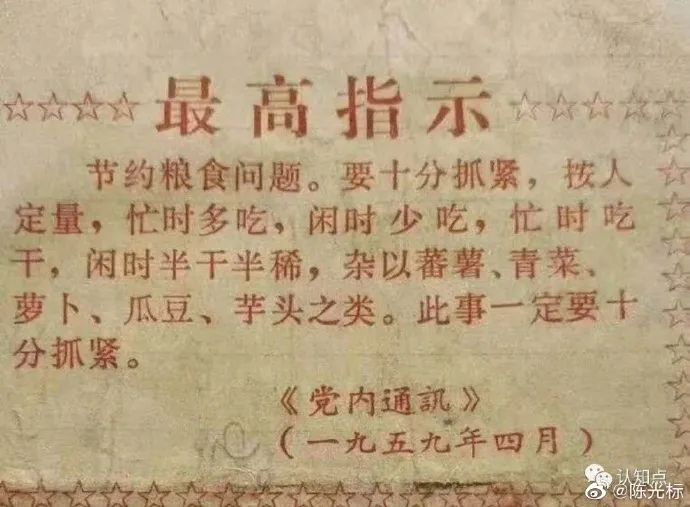 ☆☆☆☆ 最高指示 ☆☆☆☆☆
节约粮食问题。要十分抓紧，按人
定量，忙时多吃，闲时少吃，忙时吃
干，闲时半干半稀，杂以蕃薯、青菜、
萝卜、瓜豆、芋头之类。此事一定要十
分抓紧。
《党内通訊》
（一九五九年四月）
认知点
@陈光标